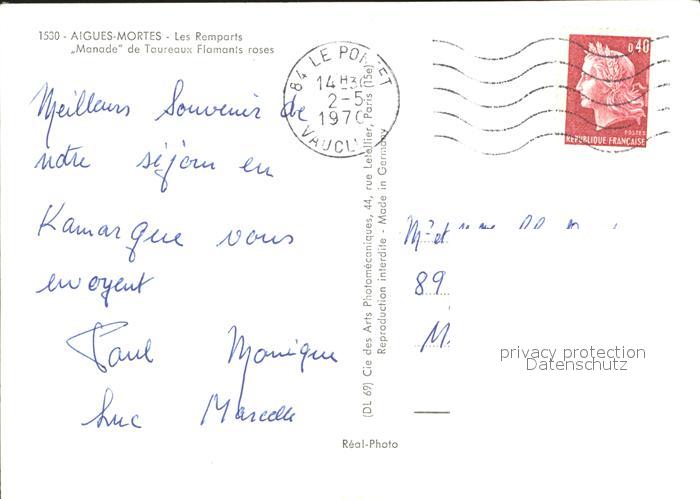 1530 - AIGUES-MORTES - Les Remparts
„Manade" de Taureaux Flamants roses
84 LE PONTET
14 H30
2-5
1970
VAUCLUSE
0,40
POSTES
REPUBLIQUE FRANÇAISE
Meilleurs Souvenir de
notre séjour en
Kamargue vous
envoyent
Paul Monique
Luc Marcelle
(DL 69) Cie des Arts Photomécaniques, 44, rue Letellier, Paris (15e)
Reproduction interdite - Made in Germany
M. et
89
M.
privacy protection
Datenschutz
Réal-Photo